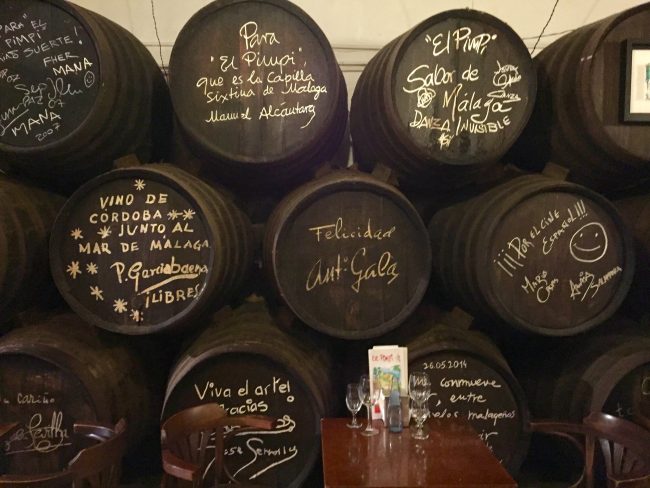 PARA "EL
PIMPI
SUERTE!
FHER
MANA
MANA
2007
Para
"El Pimpi",
que es la Capilla
Sixtina de Malaga
Manuel Alcántara
"EL PIMPI"
Sabor de
Málaga
DANZA INVISIBLE
VINO DE
CÓRDOBA
JUNTO AL
MAR DE MÁLAGA
P. Garcíabaena
¡LIBRES!
Felicidad
Ant. Gala
¡¡¡POR EL CINE
ESPAÑOL!!!
Cariño
Viva el arte!
Gracias
EL PIMPI
26.05.2014
conmueve,
entre
malagueños